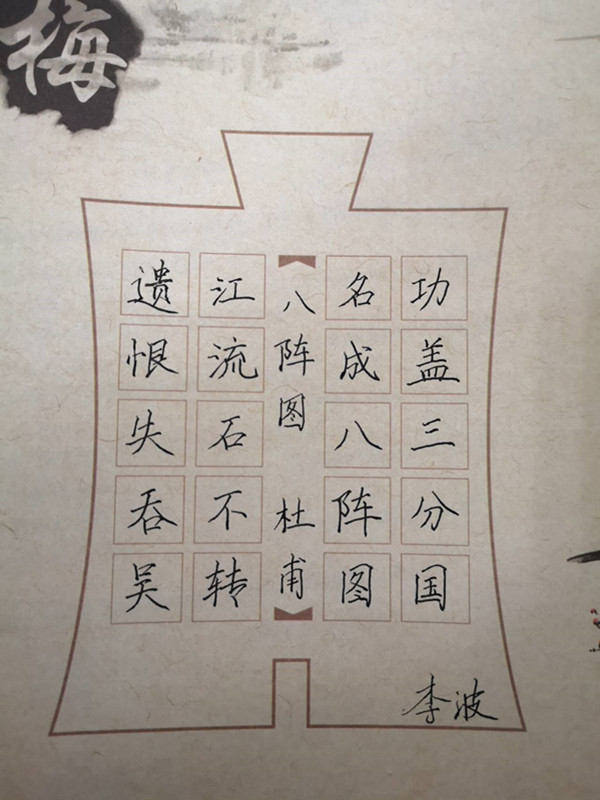 梅
功盖三分国
名成八阵图
八阵图 杜甫
江流石不转
遗恨失吞吴
李波